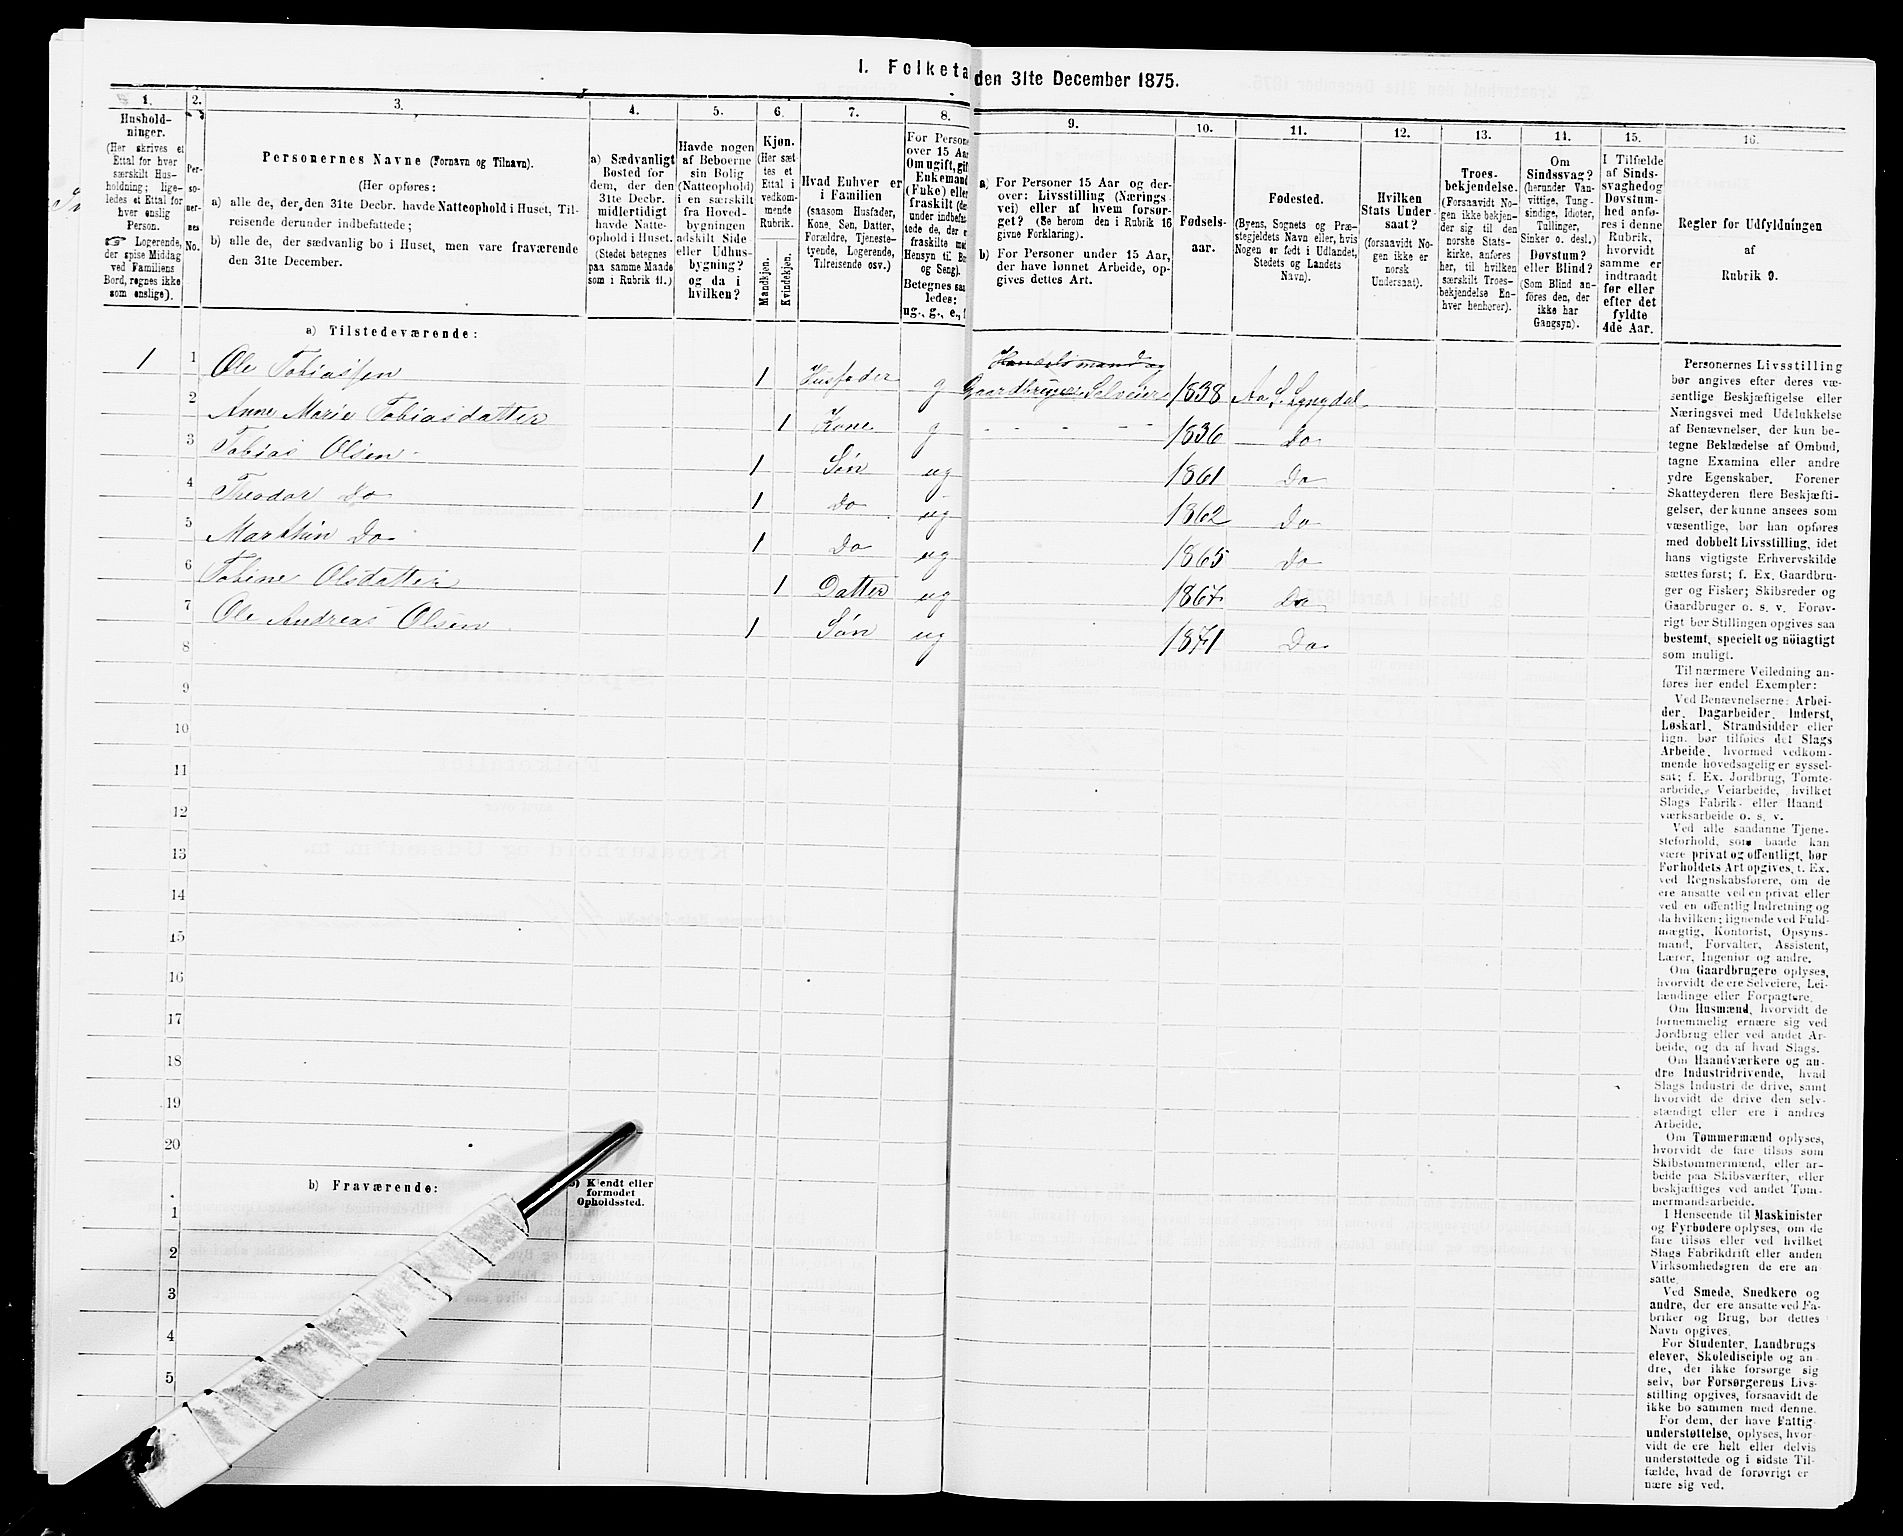 I. Folketa den 31te December 1875.
1.
Hushold-
ninger.
(Her skrives et
Ettal for hver
særskilt Hus-
holdning; lige-
ledes et Ettal for
hver enslig
Person.
☞ Logerende,
der spise Middag
ved Familiens
Bord, regnes ikke
som enslige).
2.
Per-
so-
ner-
nes
No.
3.
Personernes Navne (Fornavn og Tilnavn).
(Her opføres:
a) alle de, der den 31te Decbr. havde Natteophold i Huset, Til-
reisende derunder indbefattede;
b) alle de, der sædvanlig bo i Huset, men vare fraværende
den 31te December.
4.
a) Sædvanligt
Bosted for
dem, der den
31te Decbr.
midlertidigt
havde Natte-
ophold i Huset.
(Stedet betegnes
paa samme Maade
som i Rubrik 11.)
5.
Havde nogen
af Beboerne
sin Bolig
(Natteophold)
i en særskilt
fra Hoved-
bygningen
adskilt Side
eller Udhus-
bygning?
og da i
hvilken?
6.
Kjøn.
(Her sæt
tes et
Ettal i
vedkom-
mende
Rubrik.
Mandkjøn.
Kvindekjøn.
7.
Hvad Enhver er
i Familien
(saasom Husfader,
Kone, Søn, Datter,
Forældre, Tjeneste-
tyende, Logerende,
Tilreisende osv.)
8.
For Persone
over 15 Aar
Om ugift, gif
Enkemand
(Fuke) eller
fraskilt (de
under indbefat
tede de, der e
fraskilte med
Hensyn til Bo
og Seng).
Betegnes saa
ledes:
ug., g., e., f
9.
a) For Personer 15 Aar og der-
over: Livsstilling (Nærings-
vei) eller af hvem forsør-
get? (Se herom den i Rubrik 16
givne Forklaring).
b) For Personer under 15 Aar,
der have lønnet Arbeide, op-
gives dettes Art.
10.
Fødsels-
aar.
11.
Fødested.
(Byens, Sognets og Præ-
stegjeldets Navn eller, hvis
Nogen er født i Udlandet,
Stedets og Landets
Navn).
12.
Hvilken
Stats Under-
saat?
(forsaavidt No-
gen ikke er
norsk
Undersaat).
13.
Troes-
bekjendelse.
(Forsaavidt No-
gen ikke bekjen-
der sig til den
norske Stats-
kirke, anføres
her, til hvilken
særskilt Troes-
bekjendelse En-
hver henhører).
14.
Om
Sindssvag?
(herunder Van-
vittige, Tung-
sindige, Idioter,
Tullinger,
Sinker o. desl.)
Døvstum?
eller Blind?
(Som Blind an-
føres den, der
ikke har
Gangsyn).
15.
I Tilfælde
af Sinds-
svaghedog
Døvstum-
hed anfø-
res i denne
Rubrik,
hvorvidt
samme er
indtraadt
før eller
efter det
fyldte
4de Aar.
16.
Regler for Udfyldningen
af
Rubrik 9.
a) Tilstedeværende:
Handelsmand og
1 1 Ole Tobiassen 1 Husfader g Gaardbruger Selveier 1838 Aa S. Lyngdal
2 Anne Marie Tobiasdatter 1 Kone g - - - - - 1836 Do
3 Tobias Olsen 1 Søn ug 1861 Do
4 Theodor Do 1 do ug 1862 Do
5 Marthin Do 1 Do ug 1865 Do
6 Tobine Olsdatter 1 Datter ug 1867 Do
7 Ole Andreas Olsen 1 Søn ug 1871 Do
8
9
10
11
12
13
14
15
16
17
18
19
20
b) Fraværende:
b) Kjendt eller
formodet
Opholdssted.
1
2
3
4
5
Personernes Livsstilling
bør angives efter deres væ-
sentlige Beskjæftigelse eller
Næringsvei med Udelukkelse
af Benævnelser, der kun be-
tegne Beklædelse af Ombud,
tagne Examina eller andre
ydre Egenskaber. Forener
Skatteyderen flere Beskjæfti-
gelser, der kunne ansees som
væsentlige, bør han opføres
med dobbelt Livsstilling, idet
hans vigtigste Erhvervskilde
sættes først; f. Ex. Gaardbru-
ger og Fisker; Skibsreder og
Gaardbruger o. s. v. Forøv-
rigt bør Stillingen opgives saa
bestemt, specielt og nöiagtigt
som muligt.
Til nærmere Veiledning an-
føres her endel Exempler:
Ved Benævnelserne: Arbei-
der, Dagarbeider, Inderst,
Løskarl, Strandsidder eller
lign. bør tilføies det Slags
Arbeide, hvormed vedkom-
mende hovedsagelig er syssel-
sat; f. Ex. Jordbrug, Tomte-
arbeide, Veiarbeide, hvilket
Slags Fabrik- eller Haand
værksarbeide o. s. v.
Ved alle saadanne Tjene-
steforhold, som baade kan
være privat og offentligt, bør
Forholdets Art opgives, t. Ex.
ved Regnskabsførere, om de
ere ansatte ved en privat eller
ved en offentlig Indretning og
da hvilken; lignende ved Fuld-
mægtig, Kontorist, Opsyns-
mand, Forvalter, Assistent,
Lærer, Ingeniør og andre.
Om Gaardbrugere oplyses,
hvorvidt de ere Selveiere, Lei-
lændinge eller Forpagtere.
Om Husmænd, hvorvidt de
fornemmelig ernære sig ved
Jordbrug eller ved andet Ar-
beide, og da af hvad Slags.
Om Haandværkere og an-
dre Industridrivende, hvad
Slags Industri de drive, samt
hvorvidt de drive den selv-
stændigt eller ere i andres
Arbeide.
Om Tømmermænd oplyses,
hvorvidt de fare tilsøs som
Skibstømmermænd, eller ar-
beide paa Skibsværfter, eller
beskjæftiges ved andet Tøm-
mermandsarbeide.
I Henseende til Maskinister
og Fyrbødere oplyses, om de
fare tilsøs eller ved hvilket
Slags Fabrikdrift eller anden
Virksomhedsgren de ere an-
satte.
Ved Smede, Snedkere og
andre, der ere ansatte ved Fa-
briker og Brug, bør dettes
Navn opgives.
For Studenter, Landbrugs
elever, Skoledisciple og an
dre, det ikke forsørge sig
selv, bør Forsørgerens Livs-
stilling opgives, forsaavidt de
ikke bo sammen med denne.
For dem, der have Fattig-
understøttelse, oplyses, hvor-
vidt de ere helt eller delvis
understøttede og i sidste Til-
fælde, hvad de forøvrigt er
nære sig ved.